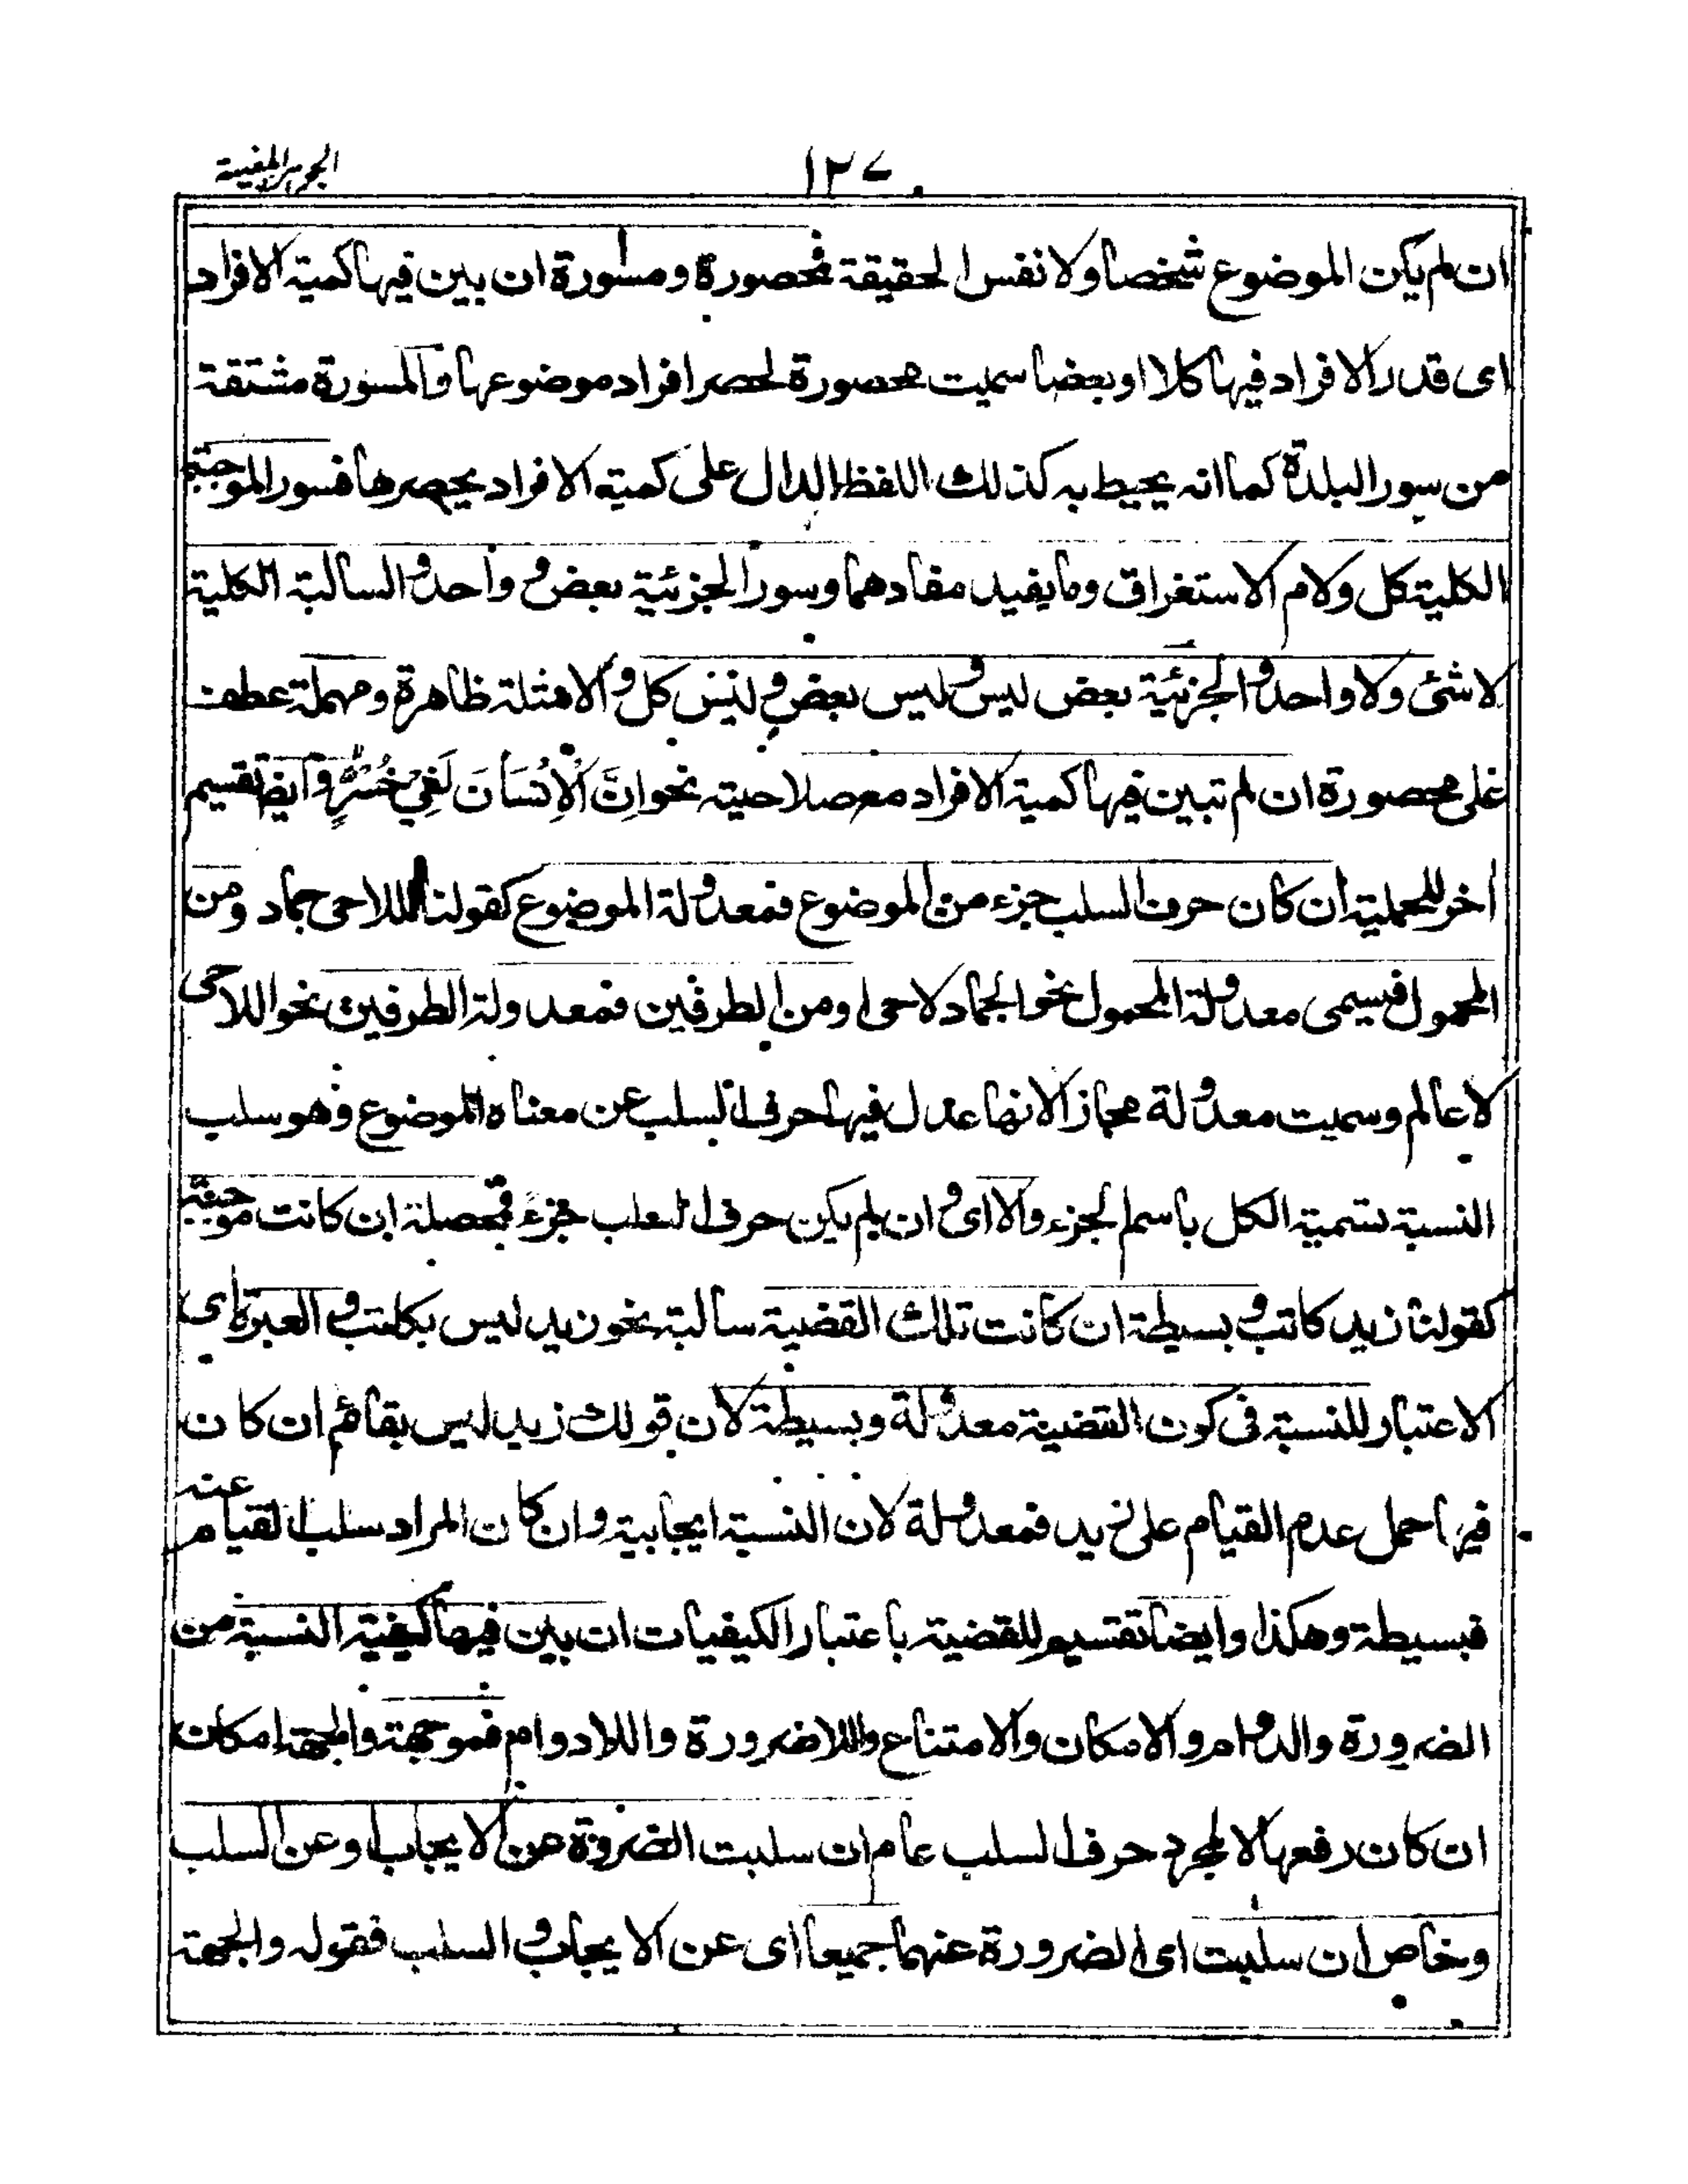 ١٢٧
ان لم يكن الموضوع شخصا ولا نفس الحقيقة فمحصورة ومسورة ان بين فيها كمية الافراد
اى قدر الافراد فيها كلا او بعضا سميت محصورة لحصر افراد موضوعها والمسورة مشتقة
من سور البلدة كما انه يحيط به كذلك اللفظ الدال على كمية الافراد يحصرها فسور الموجبة
الكلية كل ولام الاستغراق وما يفيد مفادهما وسور الجزئية بعض و واحد والسالبة الكلية
لا شئ ولا واحد والجزئية بعض ليس وليس بعض وليس كل والامثلة ظاهرة ومهملة عطف
على محصورة ان لم تبين فيها كمية الافراد مع صلاحيته نحو اِنَّ الْاِنْسَانَ لَفِيْ خُسْرٍ وايضا تقسيم
اخر للحملية ان كان حرف السلب جزء من الموضوع فمعدولة الموضوع كقولنا اللاحى جماد ومن
المحمول فيسمى معدولة المحمول نحو الجماد لا حى او من الطرفين فمعدولة الطرفين نحو اللاحى
لا عالم وسميت معدولة مجازا لانها عدل فيها حرف السلب عن معناه الموضوع وهو سلب
النسبة تسمية الكل باسم الجزء والا اى و ان لم يكن حرف السلب جزء فمحصلة ان كانت موجبة
كقولنا زيد كاتب و بسيطة ان كانت تلك القضية سالبة نحو زيد ليس بكاتب و العبرة اى
الاعتبار للنسبة فى كون القضية معدولة وبسيطة لان قولك زيد ليس بقائم ان كان
فيها حمل عدم القيام على زيد فمعدولة لان النسبة ايجابية وان كان المراد سلب القيام عنه
فبسيطة وهكذا وايضا تقسيم للقضية باعتبار الكيفيات ان بين فيها كيفية النسبة من
الضرورة والدوام والامكان والامتناع واللاضرورة واللادوام فموجهة والجهة امكان
ان كان رفعها لا لمجرد حرف السلب عام ان سلبت الضرورة عن الايجاب او عن السلب
وخاص ان سلبت اى الضرورة عنهما جميعا اى عن الايجاب و السلب فقوله والجهة